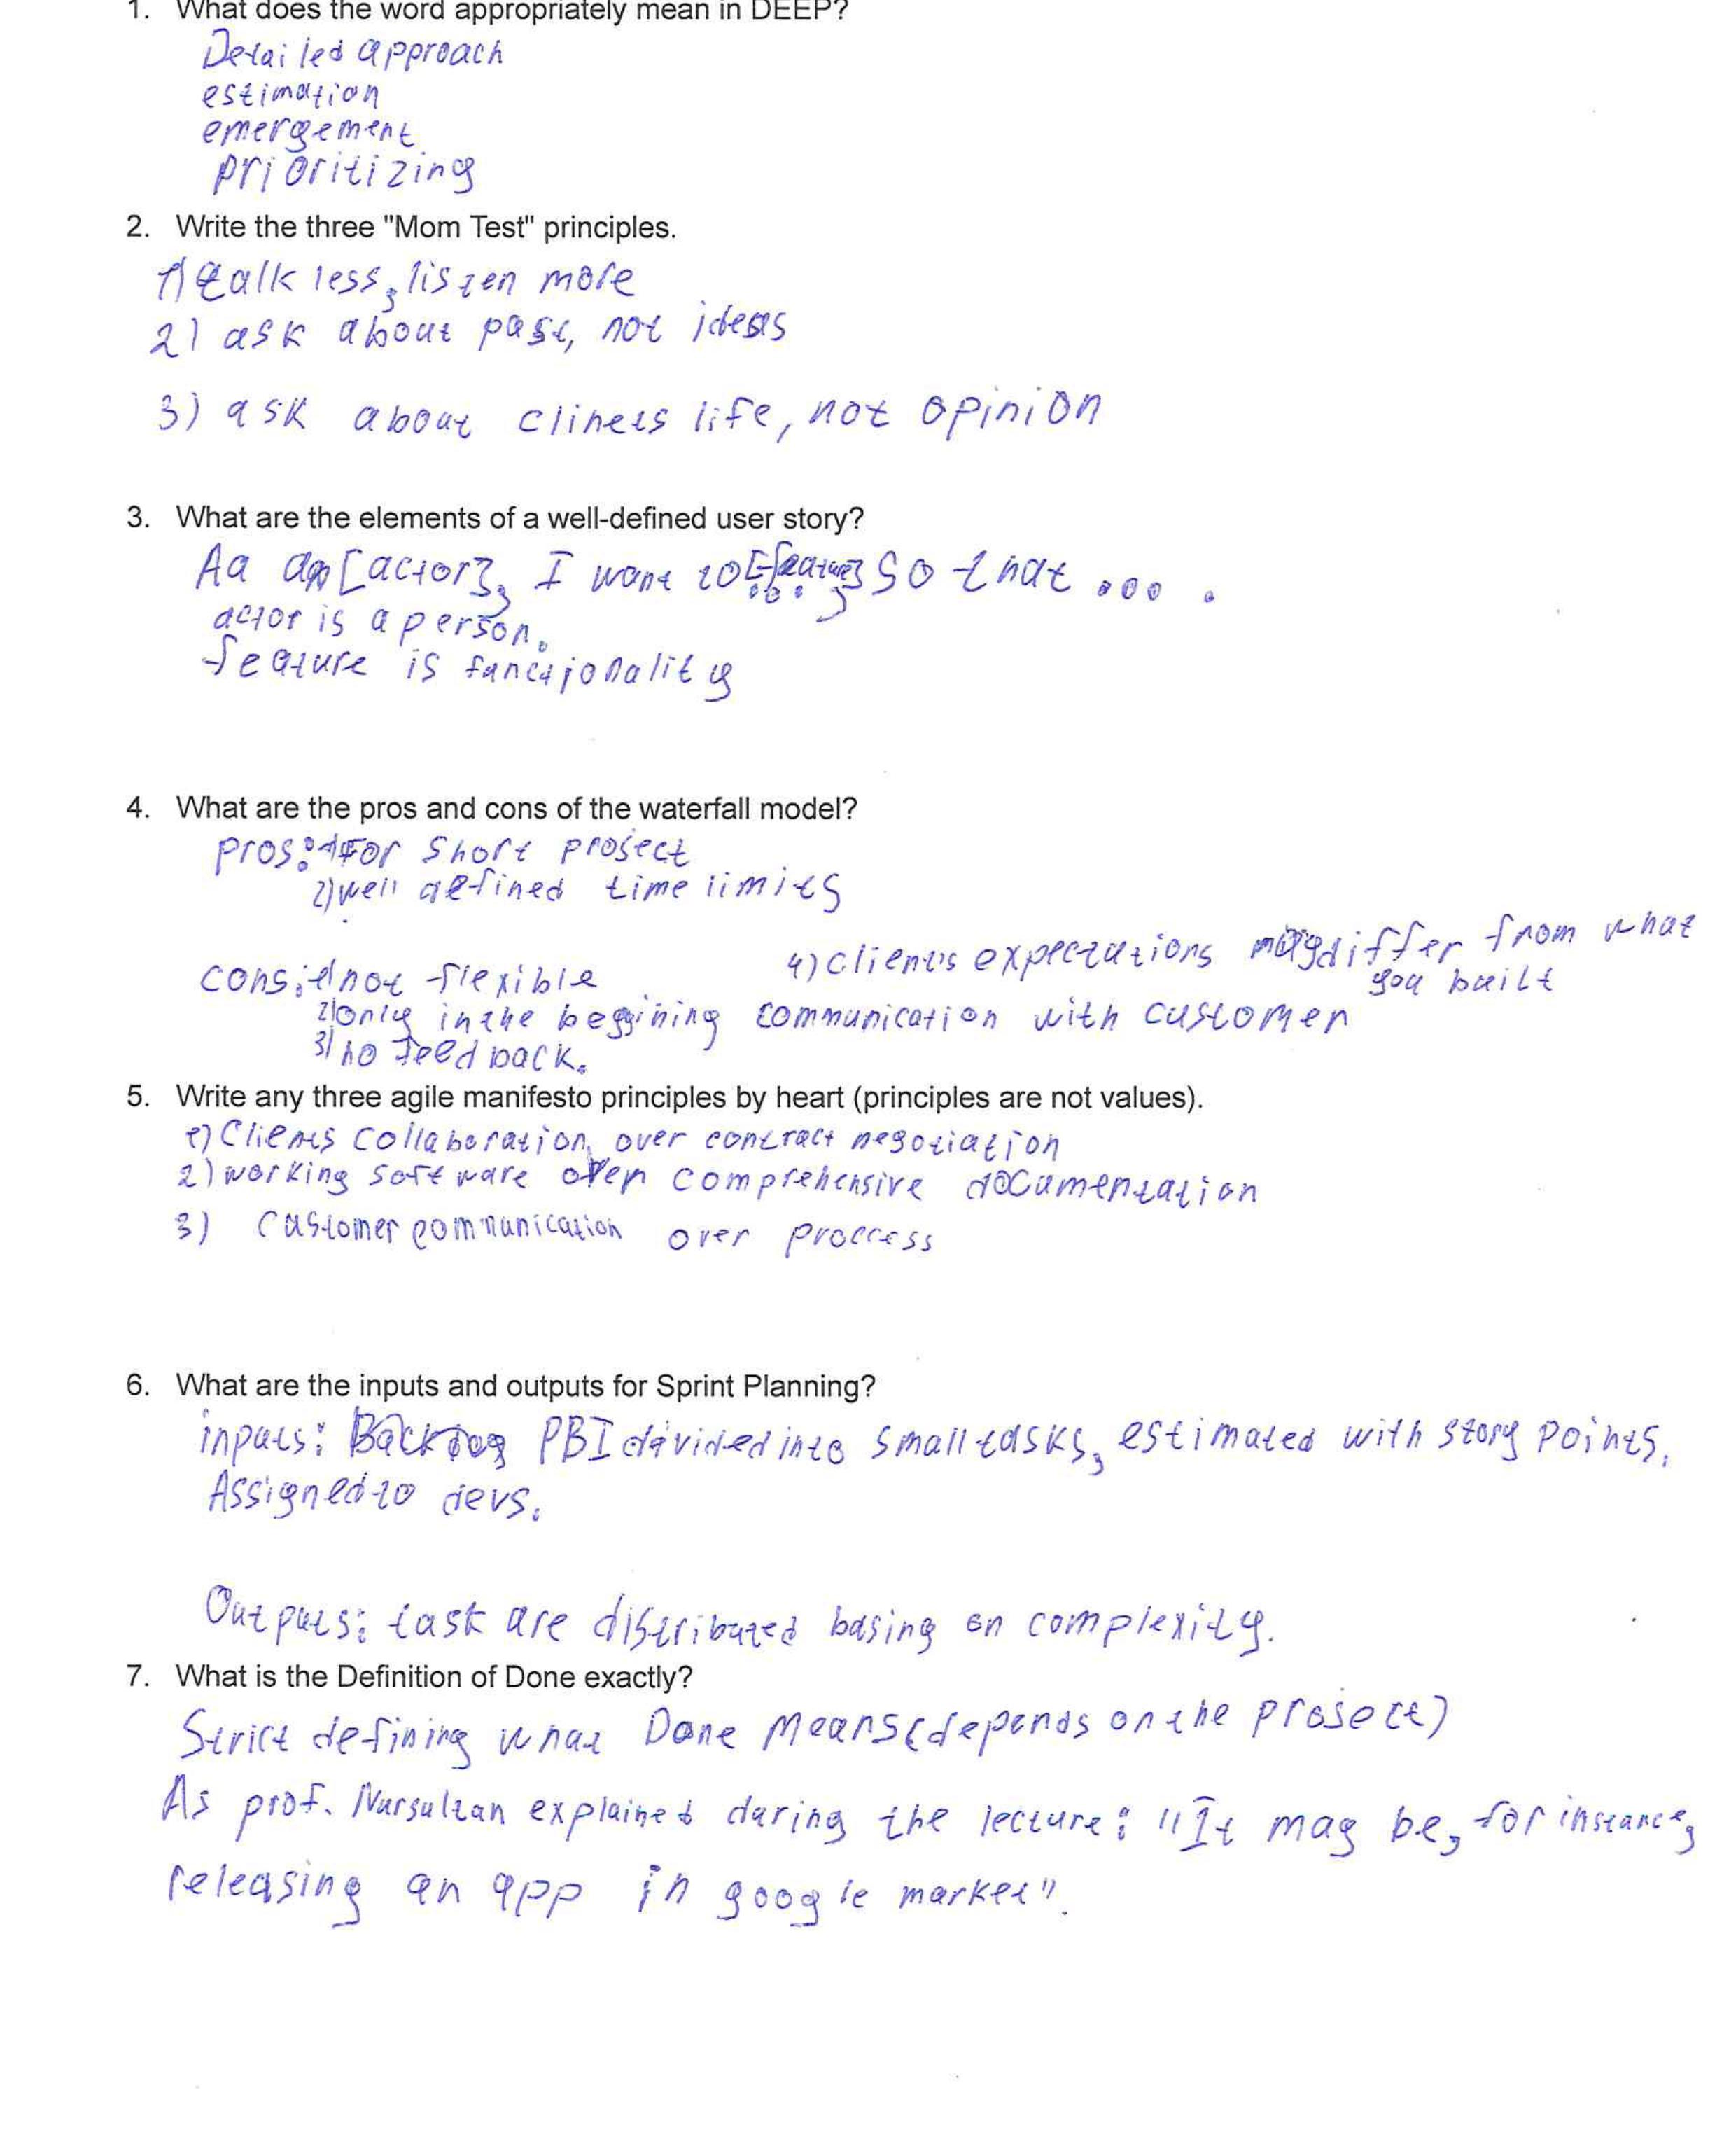 1. What does the word appropriately mean in DEEP?
Detailed approach
estimation
emergement
prioritizing
2. Write the three "Mom Test" principles.
1) talk less, listen more
2) ask about past, not ideas
3) ask about clinets life, not opinion
3. What are the elements of a well-defined user story?
[actor], I want to [feature] so that ... .
actor is a person.
feature is functionality
4. What are the pros and cons of the waterfall model?
pros: 1) For short project
2) well defined time limits
cons: 1) not flexible
2) only in the beggining communication with customer
3) no feedback.
4) client's expectations may differ from what
you built
5. Write any three agile manifesto principles by heart (principles are not values).
1) Clients collaboration over contract negotiation
2) working software over comprehensive documentation
3) customer communication over proccess
6. What are the inputs and outputs for Sprint Planning?
inputs: PBI divided into small tasks, estimated with story points.
Assigned to devs.
Outputs: task are distributed basing on complexity.
7. What is the Definition of Done exactly?
Strict defining what Done means (depends on the project)
As prof. Nursultan explained during the lecture: "It may be, for instance,
releasing an app in google market".